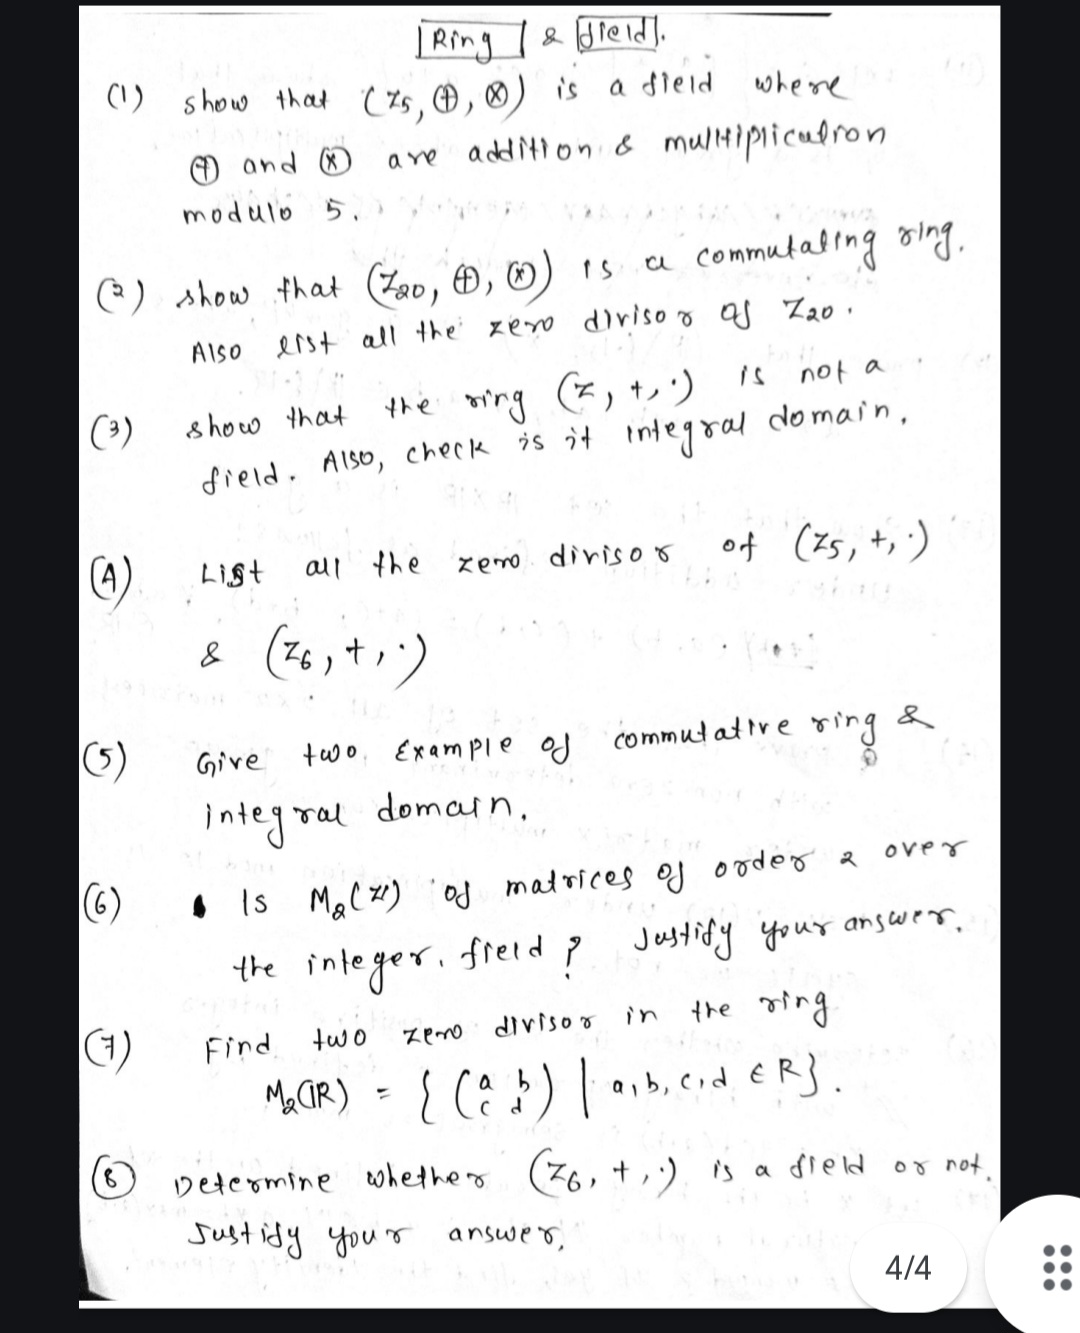 Ring & field.
(1) show that (Z5, ⊕, ⊗) is a field where
⊕ and ⊗ are addition & multiplication
modulo 5.
(2) show that (Z20, ⊕, ⊗) is a commutating ring.
Also list all the zero divisor of Z20.
(3) show that the ring (Z, +, ·) is not a
field. Also, check is it integral domain.
(4) List all the zero divisor of (Z5, +, ·)
& (Z6, +, ·)
(5) Give two Example of commutative ring &
integral domain.
(6) Is M2(Z) of matrices of order 2 over
the integer. field? Justify your answer.
(7) Find two zero divisor in the ring
M2(ℝ) = { (a b
c d) | a, b, c, d ∈ R}.
(8) Determine whether (Z6, +, ·) is a field or not.
Justify your answer.
4/4